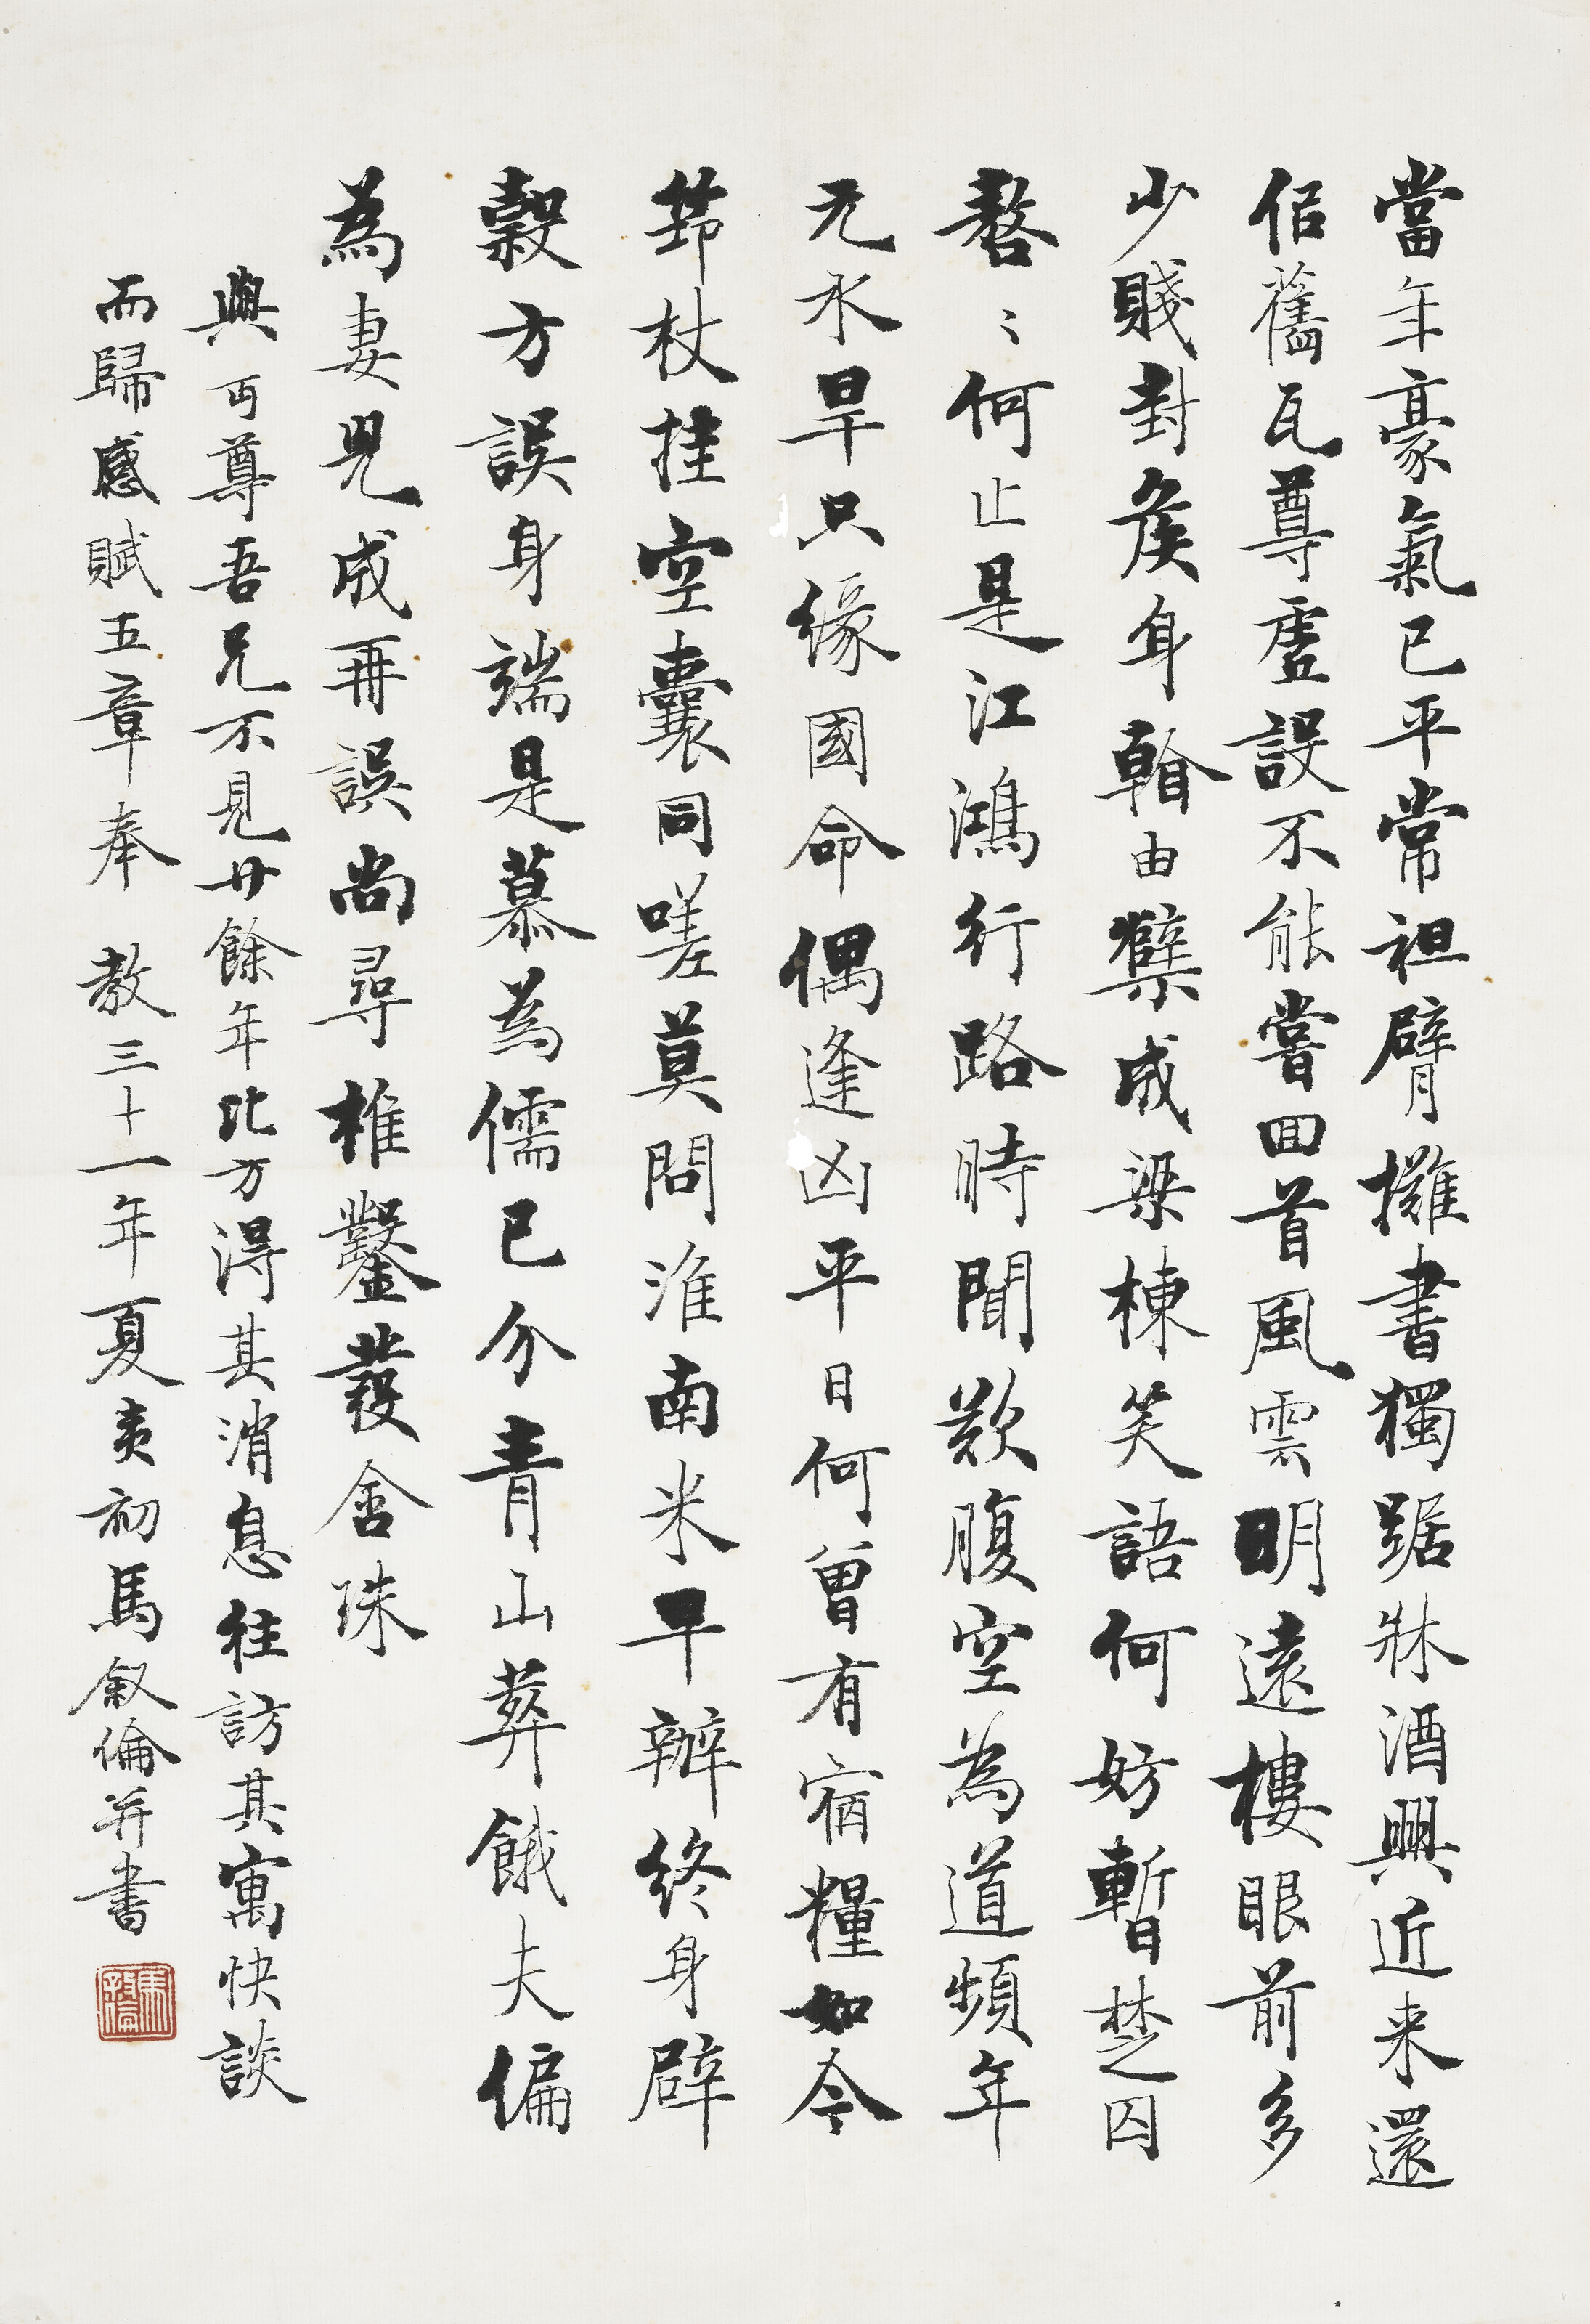 當年豪氣已平常袒臂攤書獨踞牀酒興近来還
佀舊瓦尊虛設不能嘗回首風雲明遠樓眼前多
少賤封矦身榦由櫱成梁棟笑語何妨暫楚囚
嗸〻何止是江鴻行路時聞歎腹空為道頻年
元水旱只緣國命偶逢凶平日何曾有宿糧如今
筇杖挂空囊同嗟莫問淮南米早辦終身辟
穀方誤身端是慕為儒已分青山葬餓夫偏
為妻兒成再誤尚尋椎鑿發含珠
與丏尊吾兄不見廿餘年比方得其消息往訪其寓快談
而歸感賦五章奉 教三十一年夏夷初馬叙倫并書
馬叙倫